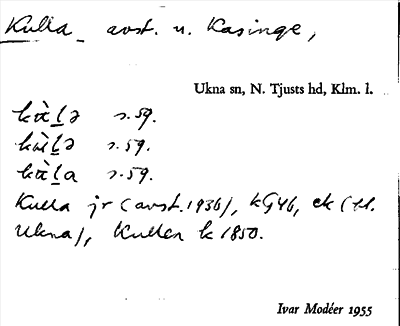 Kulla avst. u. Kasinge,
Ukna sn, N. Tjusts hd, Klm. l.
s. 59.
s. 59.
s. 59.
Kulla jr (avst. 1936), kG46, ek (tl.
Ukna), Kullen k 1850.
Ivar Modéer 1955